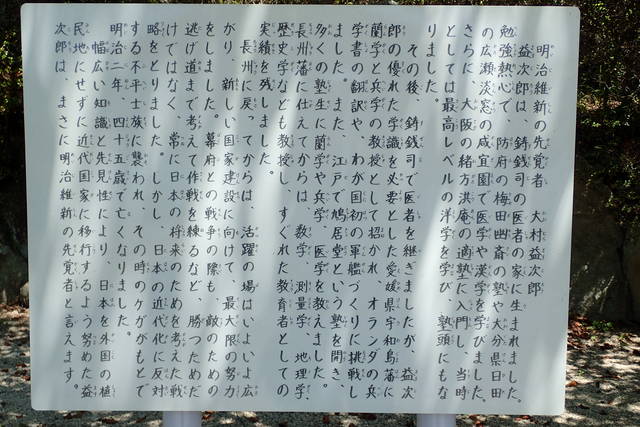 明治維新の先覚者　大村益次郎
益次郎は、鋳銭司の医者の家に生まれました。
勉強熱心で、防府の梅田幽斎の塾や大分県日田
の広瀬淡窓の咸宜園で医学や漢学を学びました。
さらに、大阪の緒方洪庵の適塾に入門し、当時
としては最高レベルの洋学を学び、塾頭にもな
りました。
その後、鋳銭司で医者を継ぎましたが、益次
郎の優れた学識を必要とした愛媛県宇和島藩に
蘭学と兵学の教授として招かれ、オランダの兵
学書の翻訳や、わが国初の軍艦づくりに挑戦し
ました。また、江戸で鳩居堂という塾を開き、
多くの塾生に蘭学や兵学、医学を教えました。
長州藩に仕えてからは、数学、測量学、地理学、
歴史学なども教授し、すぐれた教育者としての
実績を残しました。
長州に戻ってからは、活躍の場はいよいよ広
がり、新しい国家建設に向けて、最大限の努力
をしました。幕府との戦争の際も、敵のための
逃げ道まで考えて作戦を練るなど、勝つためだ
けではなく、常に日本の将来のためを考えた戦
略をとりました。しかし、日本の近代化に反対
する不平士族に襲われ、その時のケガがもとで
明治二年、四十五歳で亡くなりました。
幅広い知識と先見性により、日本を外国の植
民地にせずに近代国家に移行するよう努めた益
次郎は、まさに明治維新の先覚者と言えます。